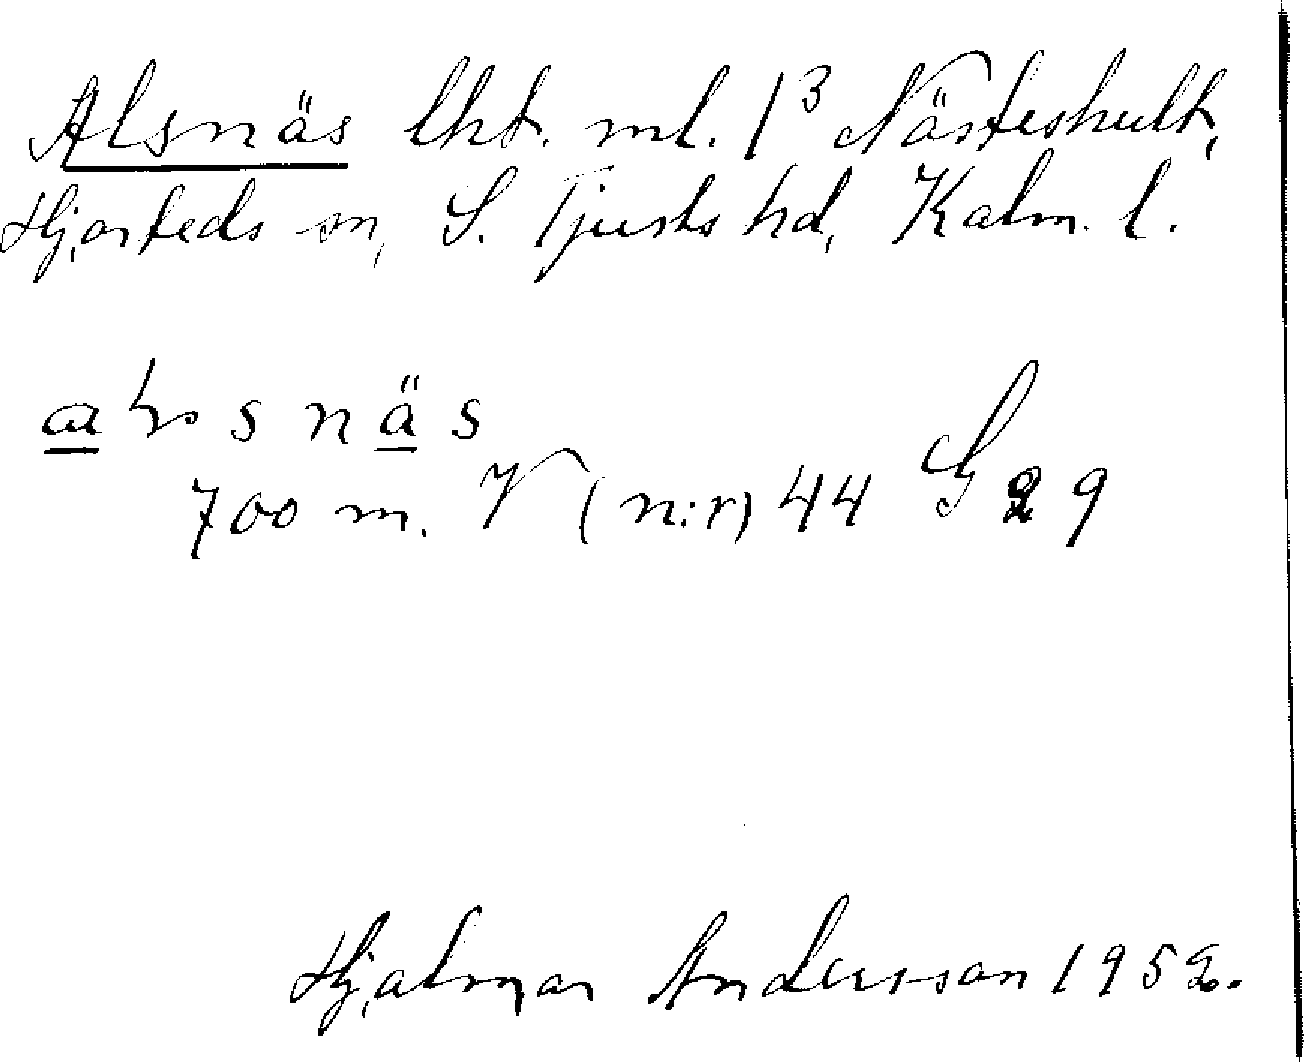 Alsnäs lht. ml. 1³ Näsfeshult,
Hjorteds sn, S. Tjusts hd, Kalm. l.
snäs
700 m. V (n:r) 44 G 29
Hjalmar Andersson 1952.